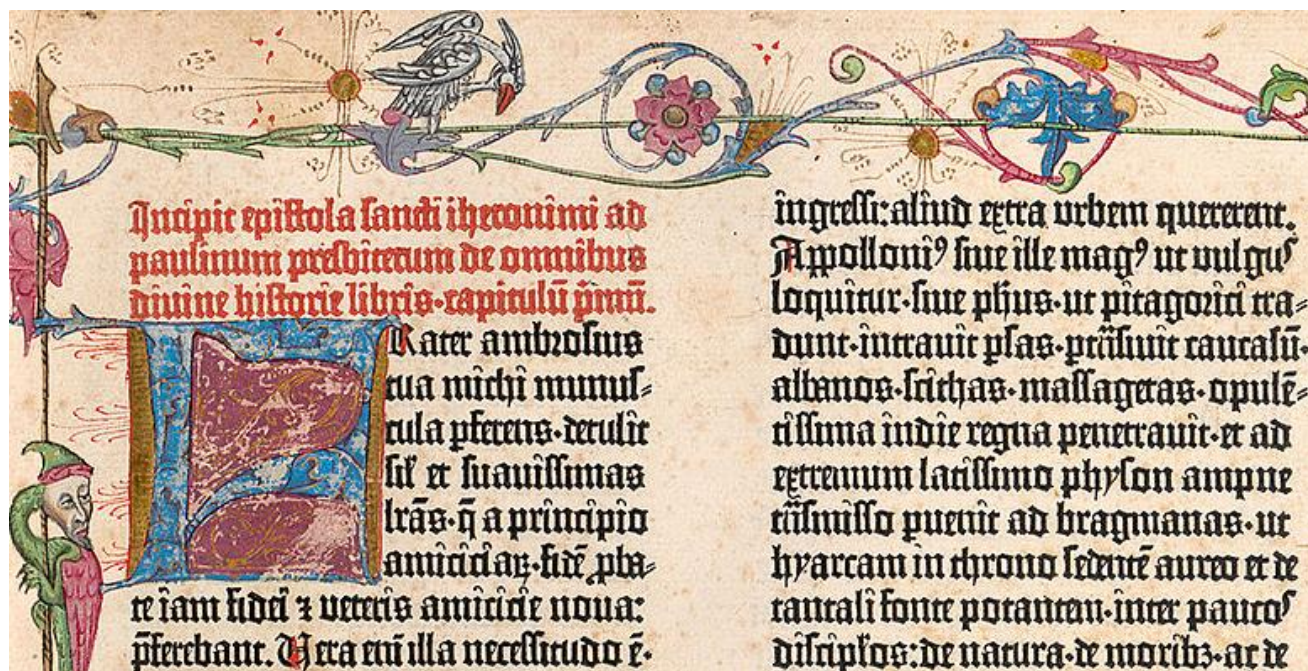 Incipit epistola sancti iheronimi ad
paulinum presbiterum de omnibus
divine historie libris·capitulū p̄mū.
Frater ambrosius
tua michi munus⸗
cula ꝑferens·detulit
sil̄ et suavissimas
lr̄as·q̄ a principio
amiciciaꝝ·fidē ꝓba⸗
te iam fidei ⁊ veteris amicicie nova:
p̄ferebant. Vera eni̅ illa necessitudo ē·
ingressi:aliud extra urbem quererent.
Appolloniꝰ sive ille magꝰ ut vulgus
loquitur·sive ph̄us·ut pitagorici tra⸗
dunt·intravit ꝑsas·ꝑtrāsivit caucasū·
albanos·scithas·massagetas·opulē⸗
tissima indie regna penetravit·et ad
extremum latissimo physon ampne
trāsmisso ꝑvenit ad bragmanas·ut
hyarcam in throno sedentē aureo et de
tantali fonte potantem·inter paucos
discipl̄os:de natura·de moribꝫ·ac de